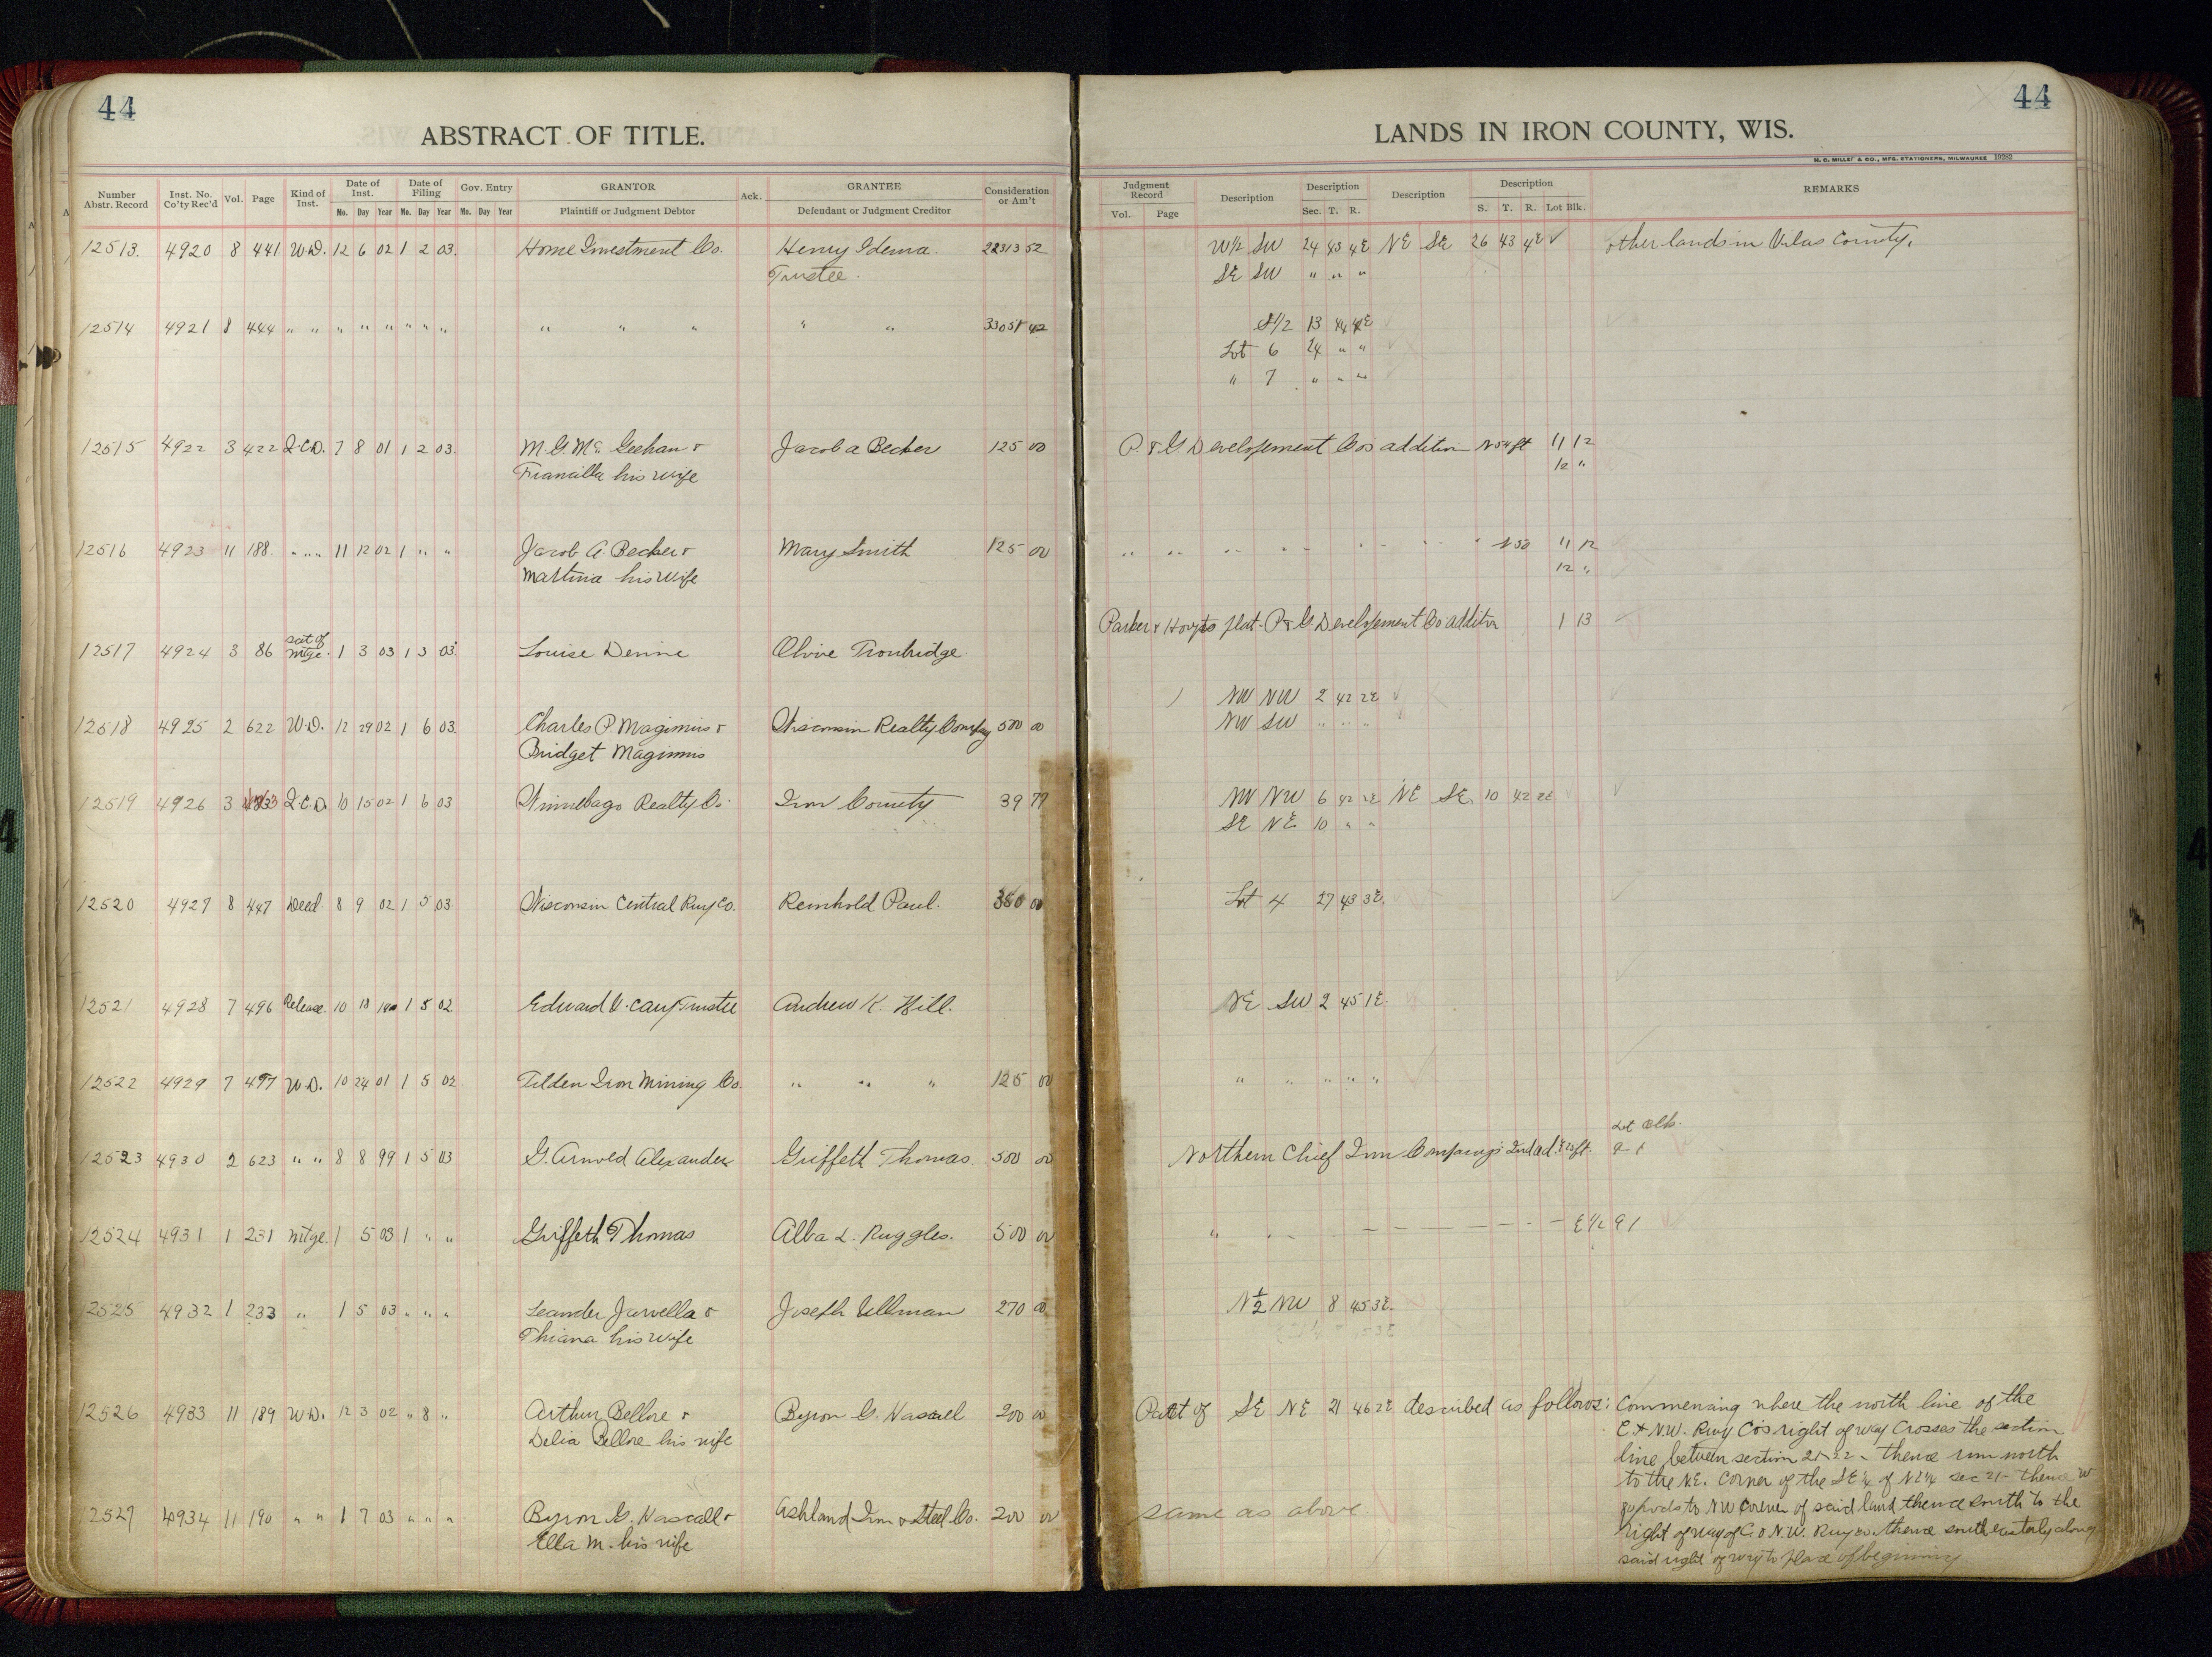 44
ABSTRACT OF TITLE.
Number Abstr. Record Inst. No. Co'ty Rec'd Vol. Page Kind of Inst. Date of Inst. Mo. Day Year Date of Filing Mo. Day Year Gov. Entry Mo. Day Year GRANTOR Plaintiff or Judgment Debtor Ack. GRANTEE Defendant or Judgment Creditor Consideration or Am't
12513. 4920 8 441 W.D. 12 6 02 1 2 03. Home Investment Co. Henry Idema. 22313 52
Trustee.
12514 4921 8 444 " " " " " " " " " " " " " 33051 42
12515 4922 3 422 Q.C.D. 7 8 01 1 2 03. M.G. Mc Geehan & Jacob A Becker 125 00
Francilla his wife
12516 4923 11 188. " " " 11 12 02 1 " " Jacob A Becker & Mary Smith 125 00
Martina his wife
12517 4924 3 86 sat of mtge. 1 3 03 1 3 03. Louise Derine Olive Trowbridge
12518 4925 2 622 W.D. 12 29 02 1 6 03. Charles P. Maginnis & Wisconsin Realty Company 500 00
Bridget Maginnis
12519 4926 3 Q.C.D. 10 15 02 1 6 03 Winnebago Realty Co. Iron County 39 77
12520 4927 8 447 Deed. 8 9 02 1 5 03. Wisconsin Central Rwy Co. Reinhold Paul. 380 00
12521 4928 7 496 Release. 10 18 1 5 02 Edward V. Cary Trustee Andrew K. Hill.
12522 4929 7 497 W.D. 10 24 01 1 5 02. Tilden Iron Mining Co. " " " 125 00
12523 4930 2 623 " " 8 8 99 1 5 03 G. Arnold Alexander Griffeth Thomas. 500 00
12524 4931 1 231 Mtge. 1 5 03 1 " " Griffeth Thomas Alba L. Ruggles. 500 00
12525 4932 1 233 " 1 5 03 " " " Leander Jarvella & Joseph Ullman 270 00
Thiana his wife
12526 4933 11 189 W.D. 12 3 02 " 8 " Arthur Bellore & Byron G. Nascall 200 00
Delia Bellore his wife
12527 4934 11 190 " " 1 7 03 " " " Byron G. Nascall & Ashland Iron & Steel Co. 200 00
Ella M. his wife
44
LANDS IN IRON COUNTY, WIS.
H. C. MILLER & CO., MFG. STATIONERS, MILWAUKEE
Judgment Record Vol. Page Description Description Sec. T. R. Description Description S. T. R. Lot Blk. REMARKS
W½ SW 24 43 4E NE SE 26 43 4E other lands in Vilas County.
SE SW " " "
S½ 13 44 4E
Lot 6 24 " "
" 7 " " "
P. & G. Developement Cos addition N 54 ft 11 12
12 "
" " " " " " " " N 50 11 12
12 "
Parker & Hoyts plat - P & G Developement Co addition 1 13
NW NW 2 42 2E
NW SW " " "
NW NW 6 42 2E NE SE 10 42 2E
SE NE 10 " "
Lot 4 27 43 3E.
NE SW 2 45 1E.
" " " " "
Lot Blk.
Northern Chief Iron Companys 2nd ad. ft. 9 - 1
" - - - - - - - - E½ 9 1
N½ NW 8 45 3E.
Part of SE NE 21 46 2E described as follows: Commencing where the north line of the
C & N.W. Rwy Cos right of way crosses the section
line between section 21-22 - thence run north
to the N.E. corner of the SE¼ of NE¼ sec 21- thence W
rods to NW corner of said land thence south to the
same as above
right of way of C & N.W. Rwy co. thence south easterly along
said right of way to place of beginning